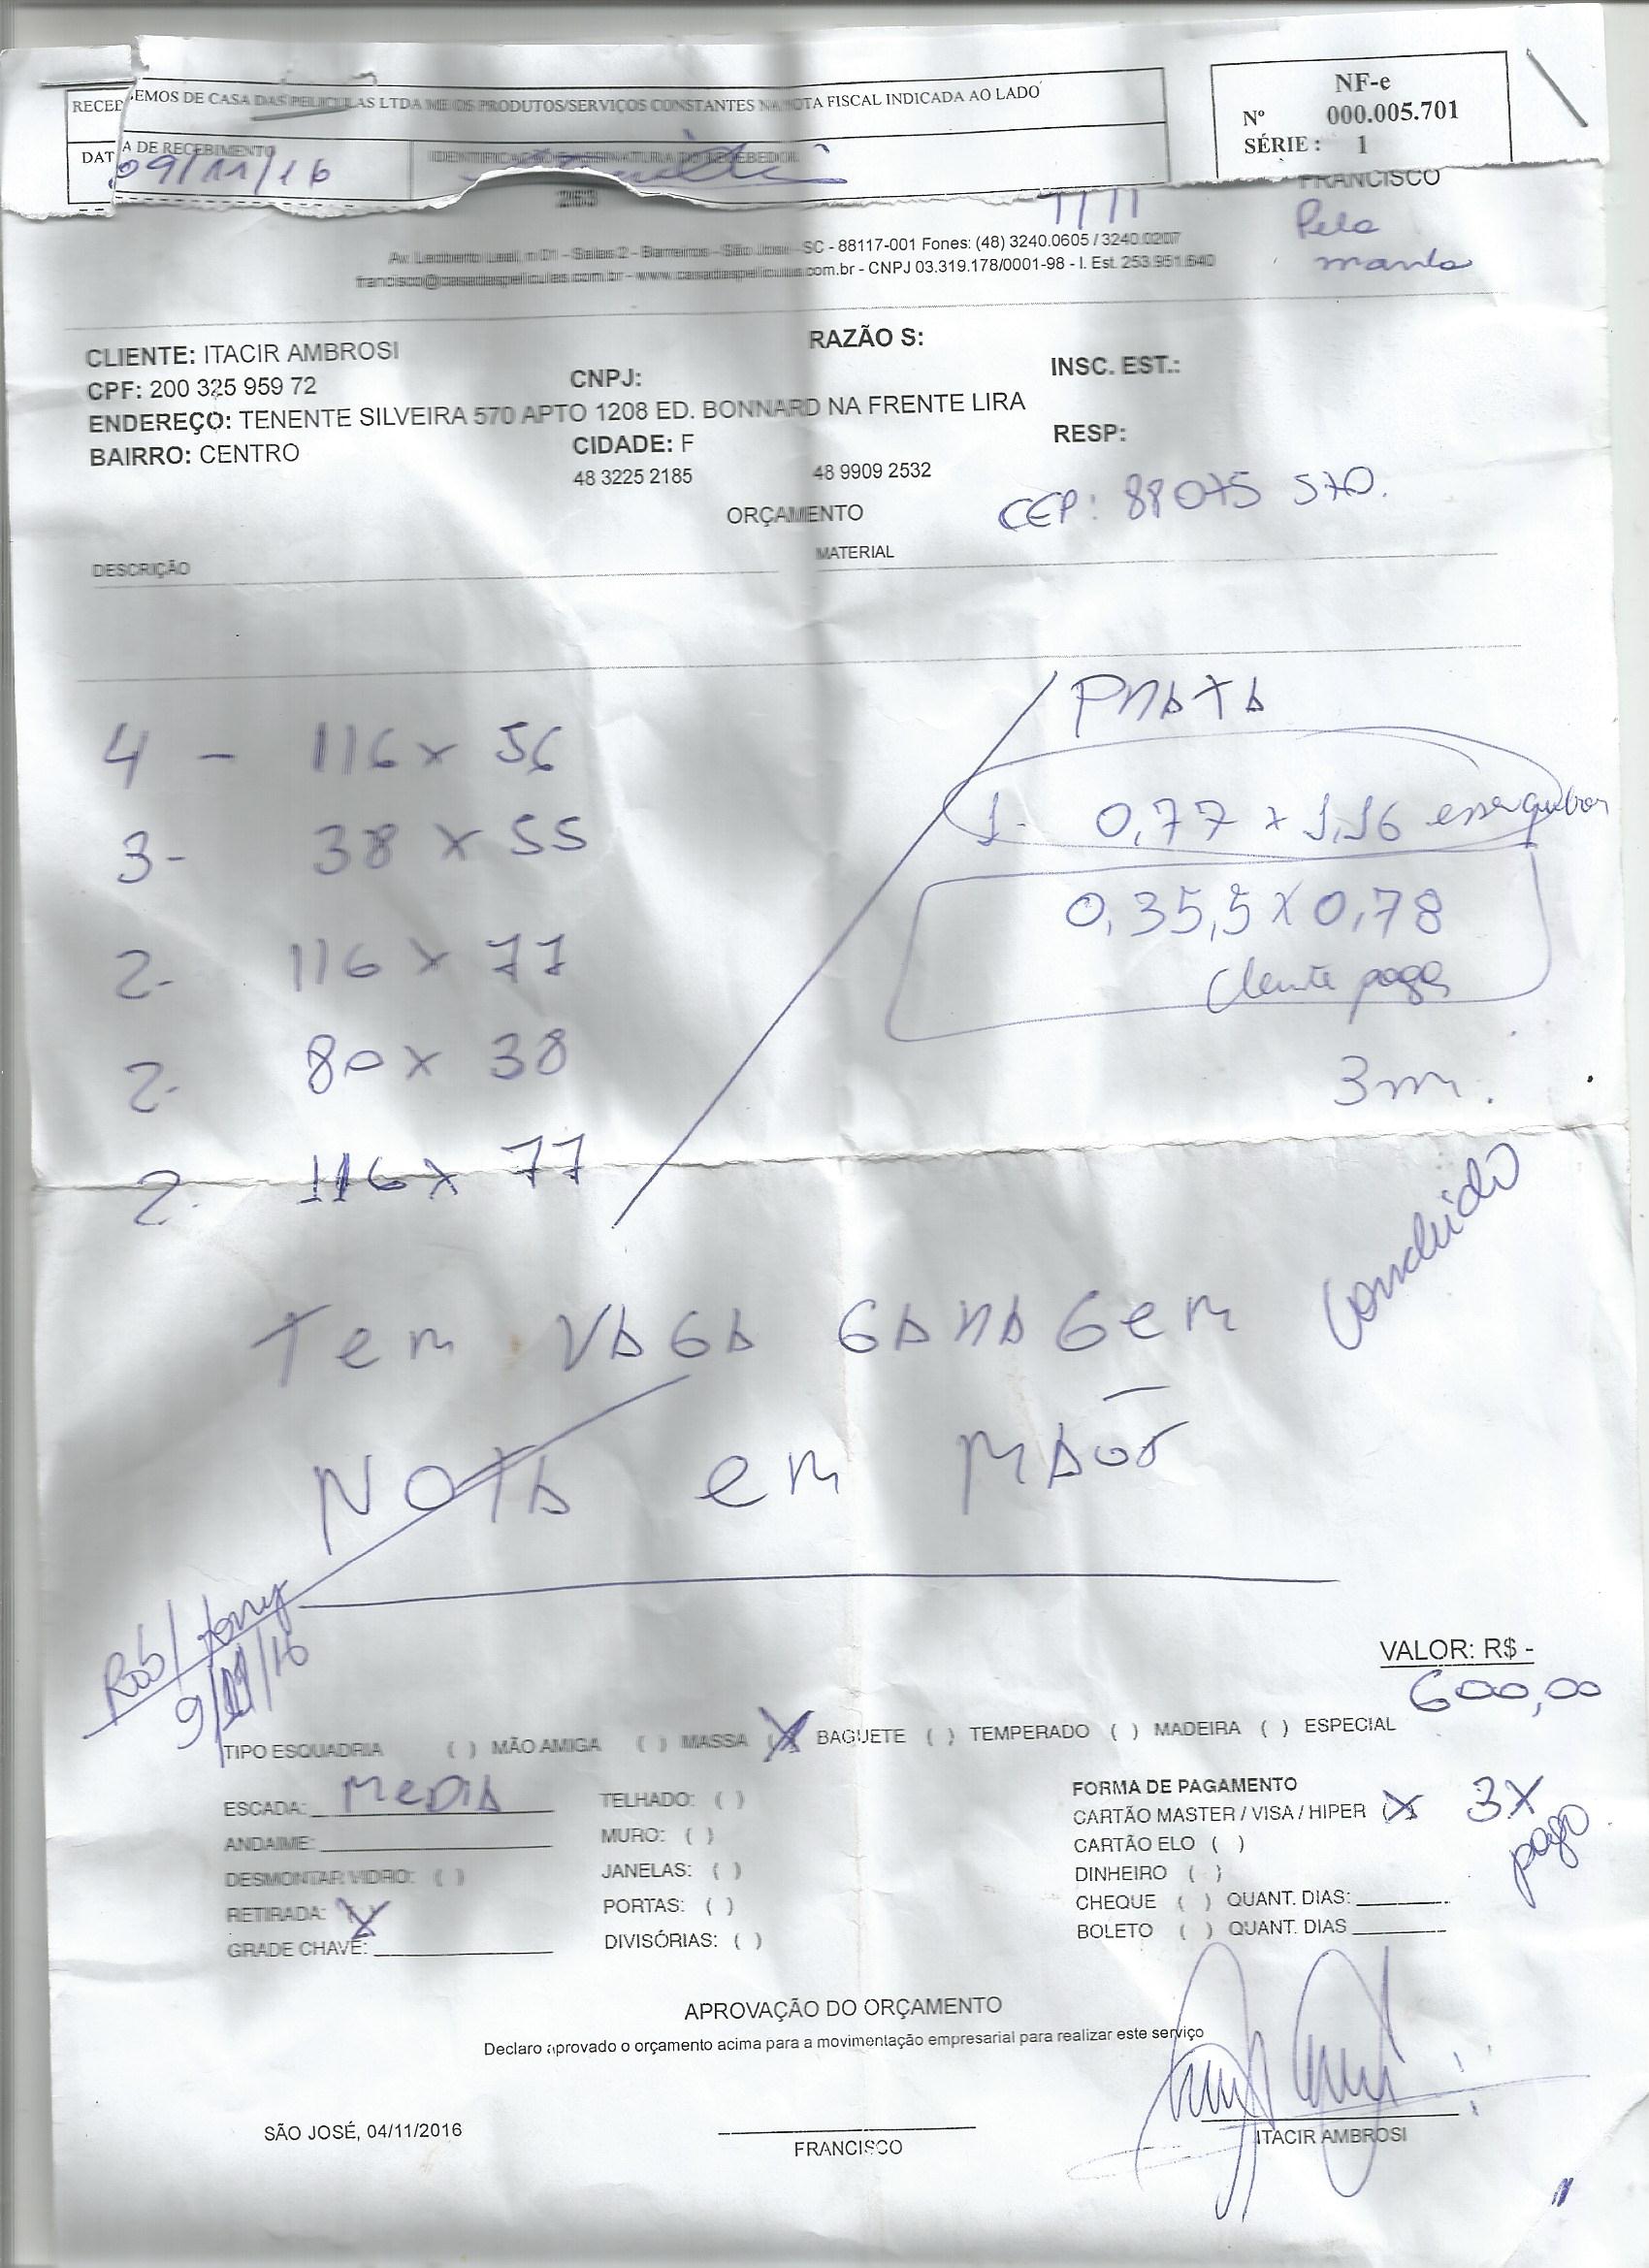 EMOS DE CASA DAS PELICULAS LTDA ME OS PRODUTOS/SERVIÇOS CONSTANTES NA NOTA FISCAL INDICADA AO LADO
RECEB
DAT A DE RECEBIMENTO
IDENTIFICAÇÃO E ASSINATURA DO RECEBEDOR
09/11/16
NF-e
Nº 000.005.701
SÉRIE: 1
263
FRANCISCO
Pela
manhã
Av. Leoberto Leal, n 01 - Salas 2 - Barreiros - São Jose - SC - 88117-001 Fones: (48) 3240.0605 / 3240.0207
francisco@casadaspeliculas.com.br - www.casadaspeliculas.com.br - CNPJ 03.319.178/0001-98 - I. Est. 253.951.640
RAZÃO S:
CLIENTE: ITACIR AMBROSI
CPF: 200 325 959 72 CNPJ: INSC. EST.:
ENDEREÇO: TENENTE SILVEIRA 570 APTO 1208 ED. BONNARD NA FRENTE LIRA
BAIRRO: CENTRO CIDADE: F RESP:
48 3225 2185 48 9909 2532
CEP: 88075 570.
ORÇAMENTO
DESCRIÇÃO MATERIAL
4 - 116 x 56
3- 38 x 55
2- 116 x 77
2- 80 x 38
2- 116 x 77
PRATA
1- 0,77 x 1,16
0,35,5 x 0,78
cliente pagou
3m.
Concluido
Tem VAGA GARAGEM
NOTA em MÃOS
Rob/tony
9/11/16
VALOR: R$ -
600,00
TIPO ESQUADRIA ( ) MÃO AMIGA ( ) MASSA (X) BAGUETE ( ) TEMPERADO ( ) MADEIRA ( ) ESPECIAL
ESCADA: MEDIA
ANDAIME:
DESMONTAR VIDRO: ( )
RETIRADA: (X)
GRADE CHAVE:
TELHADO: ( )
MURO: ( )
JANELAS: ( )
PORTAS: ( )
DIVISÓRIAS: ( )
FORMA DE PAGAMENTO
CARTÃO MASTER / VISA / HIPER (X) 3X
pago
CARTÃO ELO ( )
DINHEIRO ( )
CHEQUE ( ) QUANT. DIAS:
BOLETO ( ) QUANT. DIAS
APROVAÇÃO DO ORÇAMENTO
Declaro aprovado o orçamento acima para a movimentação empresarial para realizar este serviço
SÃO JOSÉ, 04/11/2016
FRANCISCO
ITACIR AMBROSI